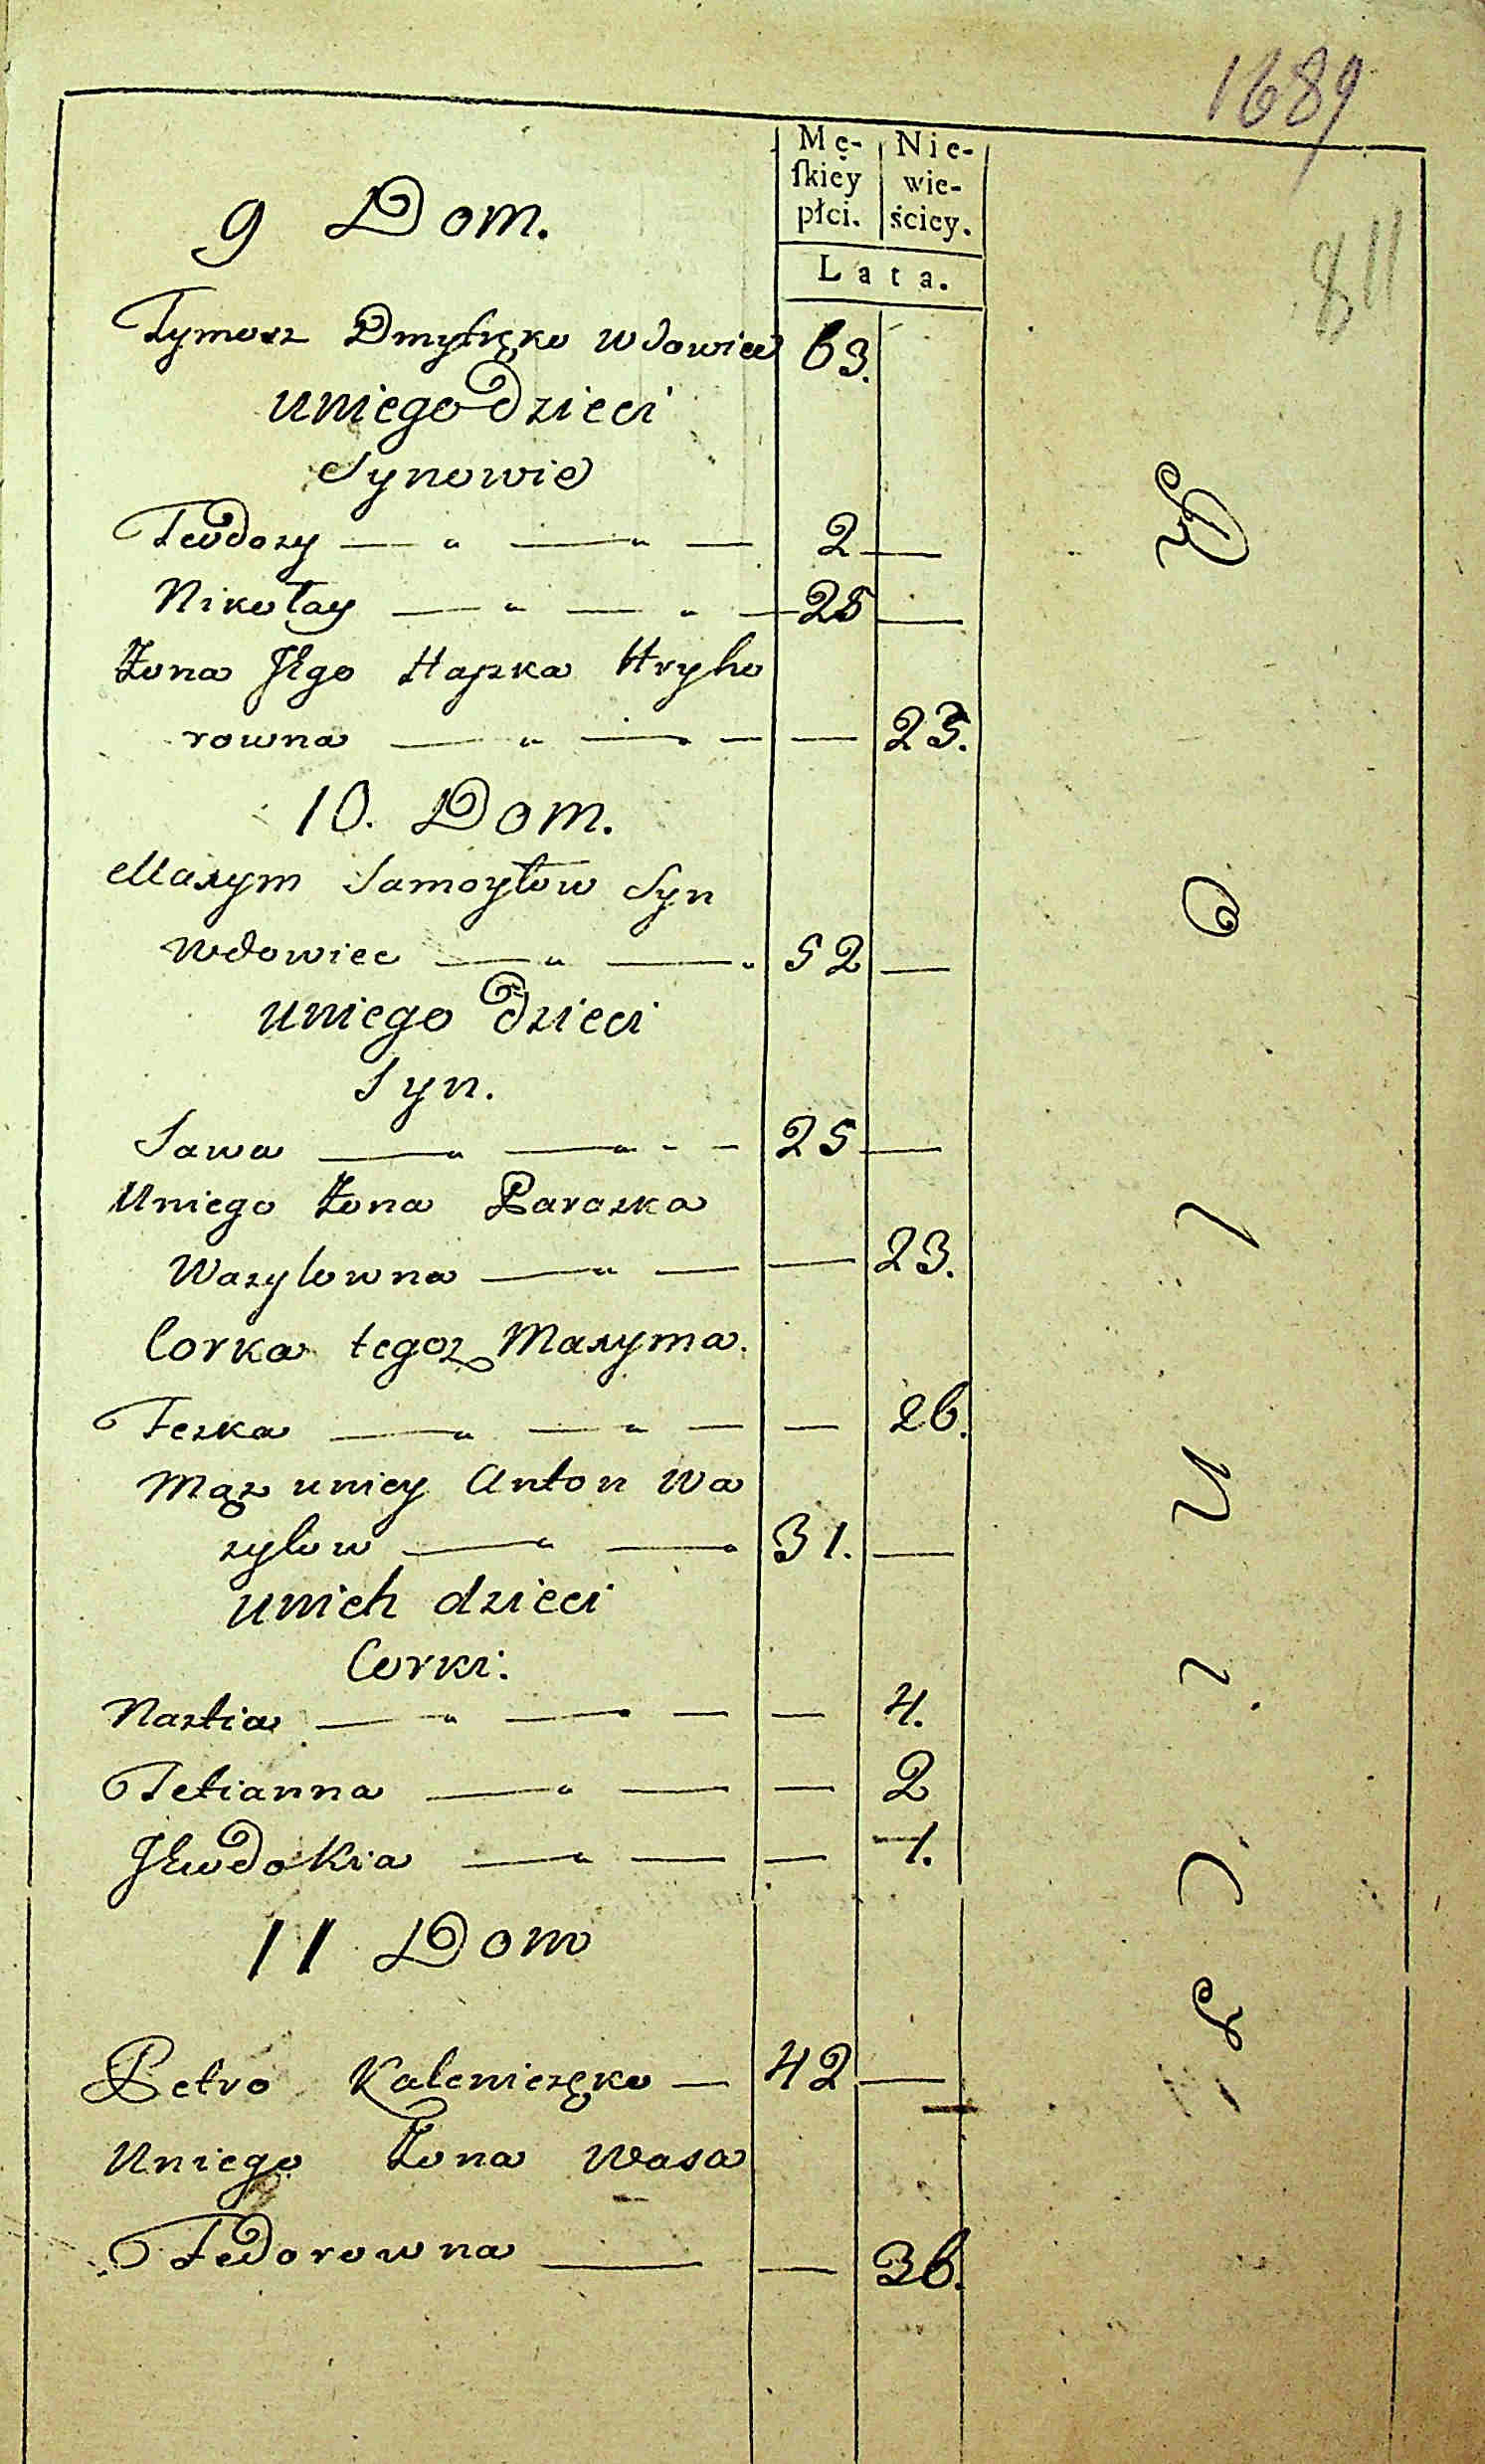 1689
811
Mę- Nie-
ſkiey wie-
płci. ściey.
Lata.
9 Dom.
Tymosz Dmytręko wdowiec 63.
uniego dzieci
Synowie
Teodozy — „ — „ — 2 —
Nikołay — „ — „ — 25 —
Żona Jego Hapka Hryho
rowna — „ — — — 23.
10. Dom.
Maxym Samoyłow Syn
wdowiec — „ — „ 52 —
uniego dzieci
Syn.
Sawa — „ — „ - - 25 —
Uniego Żona Paraska
Wasylowna — „ — — 23.
Corka tegoż Maxyma.
Feska — „ — „ — — 26.
Mąż uniey Anton Wa
sylow — „ — „ 31. —
unich dzieci
Corki:
Nastia — „ — — — 4.
Tetianna — „ — — 2
Jewdokia — „ — — 1.
11 Dom
Petro Kaleniczęko — 42 —
Uniego Żona Wasa
Fedorowna — — 36.